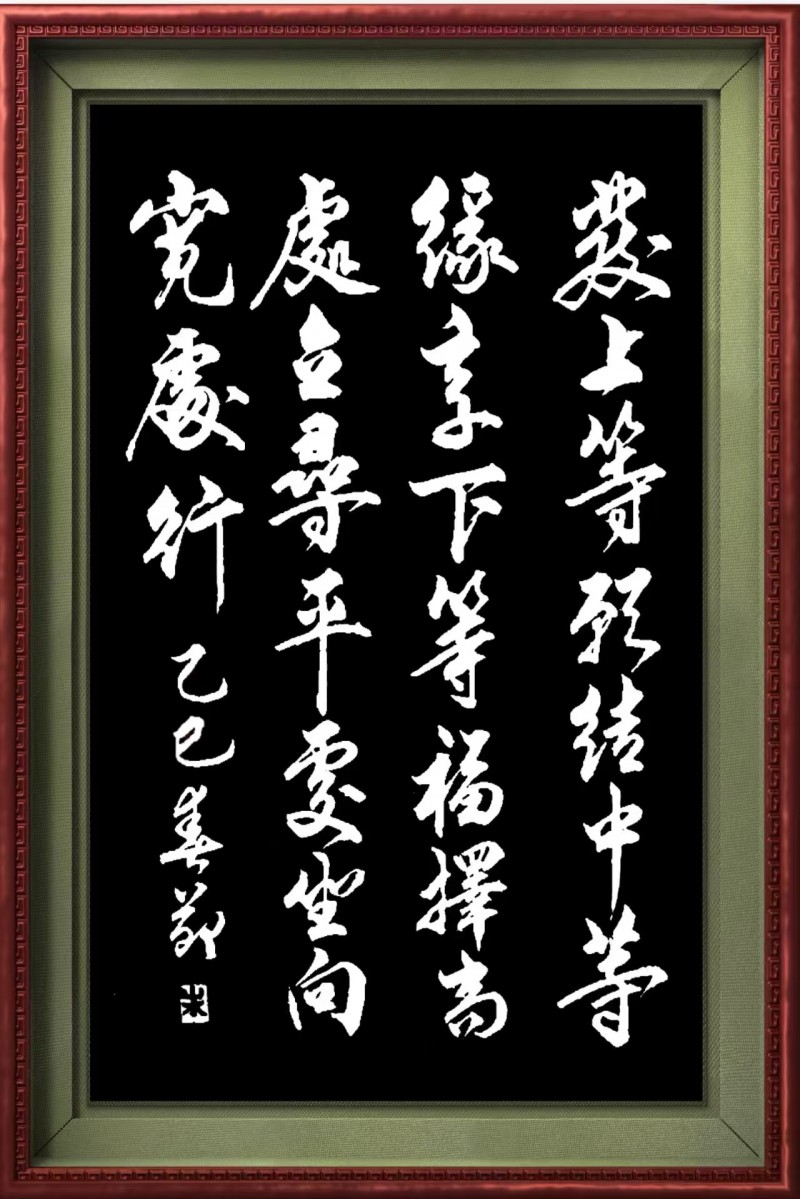 發上等願結中等
緣享下等福擇高
處立尋平處坐向
寬處行
乙巳春節
米